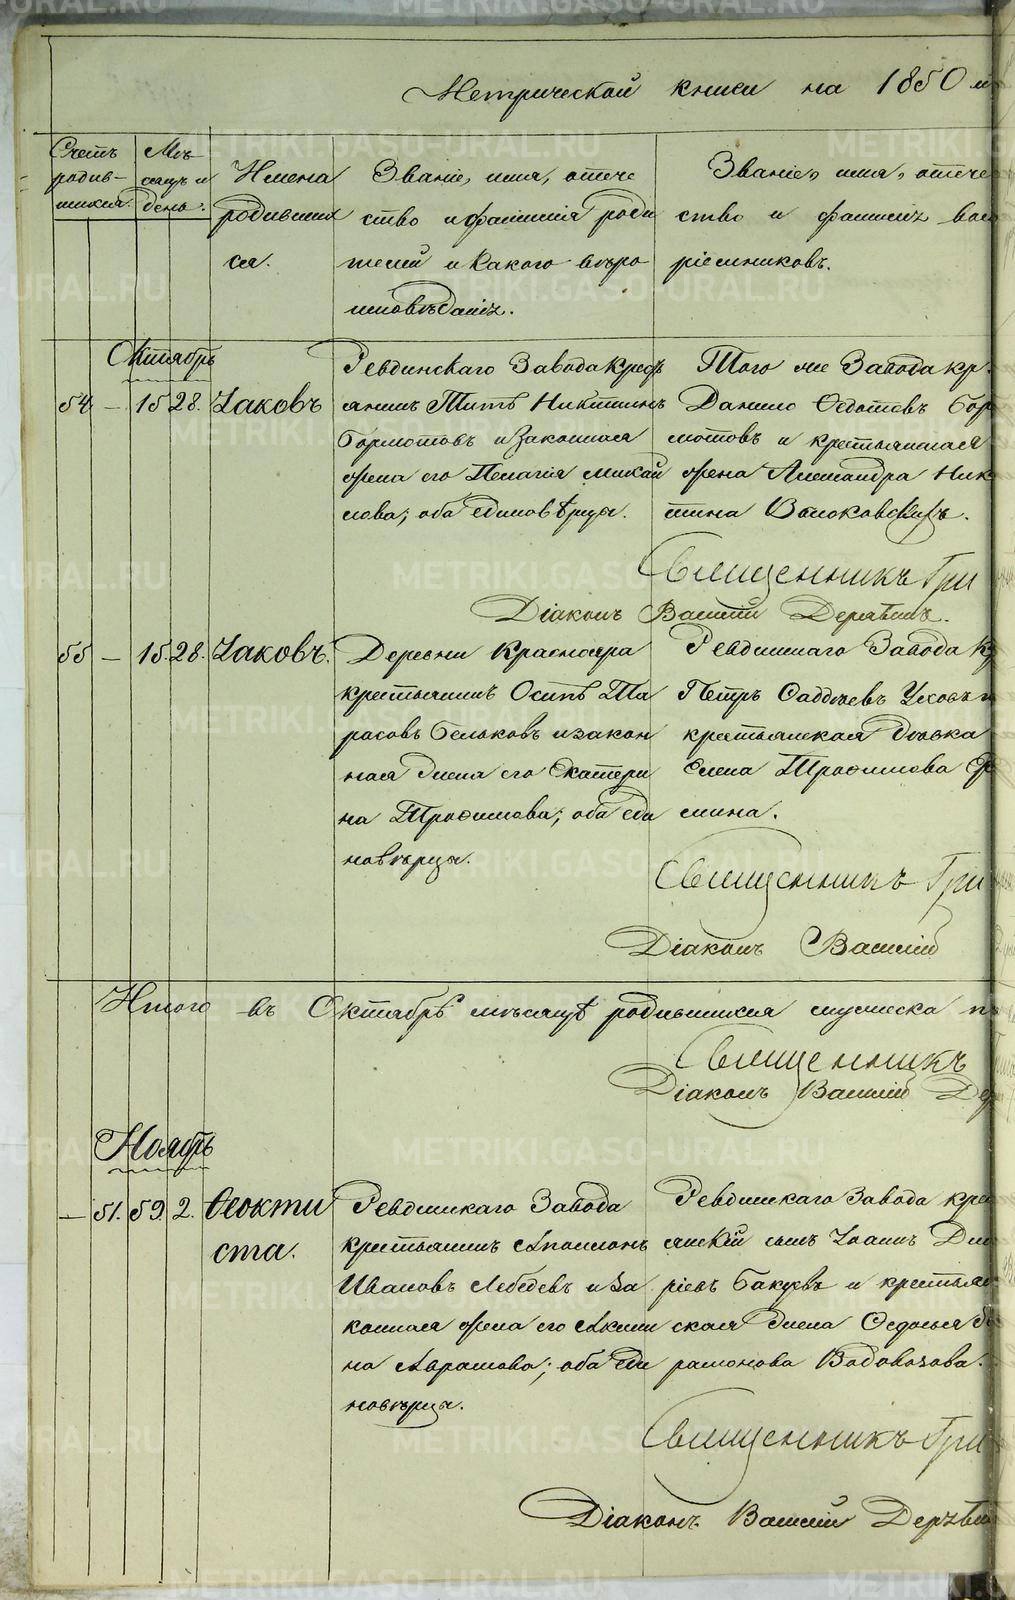 Метрической книги на 1850
Счетъ родив-шихся.
Мѣ-сяцъ и день.
Имена родившихся.
Званіе, имя, отече
ство и фамилія роди
телей и какого вѣро
исповѣданія.
Званіе, имя, отече
ство и фамилія вос
пріемниковъ.
Октябрь
54 — 15 28. Іаковъ
Ревдинскаго Завода крест
янинъ Титъ Никитинъ
Бормотовъ и законная
жена его Пелагія Михай
лова; оба единовѣрцы.
Того же Завода кр.
Данило Ѳедотовъ Бор
мотовъ и крестьянская
жена Александра Ник
тина
Священникъ Гри
Діаконъ Василій
55 — 15. 28. Іаковъ.
Деревни Краснояра
крестьянинъ Осипъ Та
расовъ Бельковъ и закон
ная жена его Екатери
на Трофимова; оба еди
новѣрцы.
Ревдинскаго Завода К
Петръ Ѳаддѣевъ
крестьянская дѣвка
Елена Трофимова
мина.
Священникъ Гри
Діаконъ Василій
Итого въ Октябрѣ мѣсяцѣ родившихся мужеска п
Священникъ
Діаконъ Василій Дер
Ноябрь
— 51. 59 2. Ѳеокти
ста.
Ревдинскаго Завода
крестьянинъ Аполлонъ
Ивановъ Лебедевъ и за
конная жена его Акили
на Аврамова; оба еди
новѣрцы.
Ревдинскаго Завода кре
янскій сынъ Іоаннъ
ріевъ и крестьян
ская жена Ѳедосья
рамонова
Священникъ Гри
Діаконъ Василій